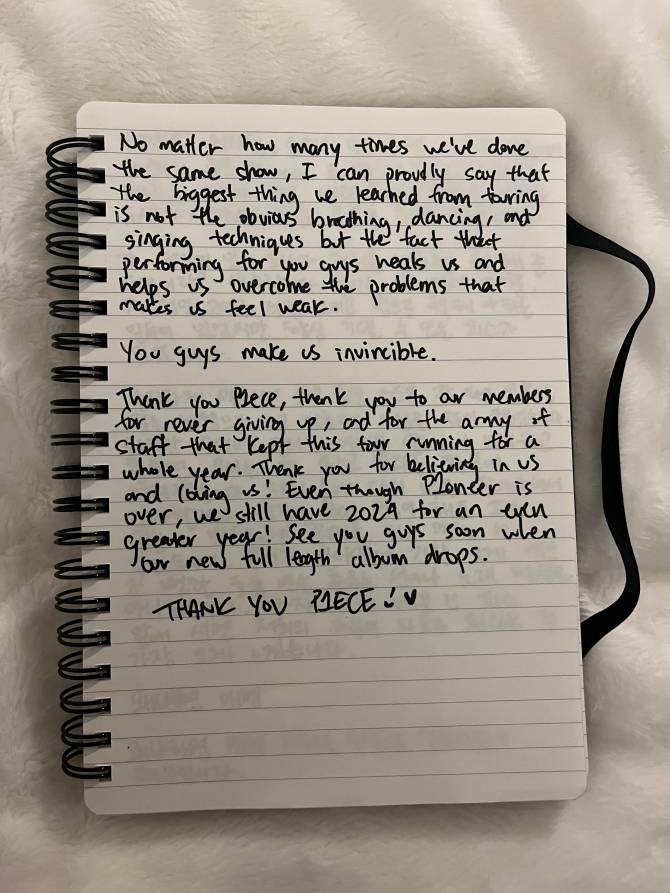 No matter how many times we've done
the same show, I can proudly say that
the biggest thing we learned from touring
is not the obvious breathing, dancing, and
singing techniques but the fact that
performing for you guys heals us and
helps us overcome the problems that
makes us feel weak.
You guys make us invincible.
Thank you P1ece, thank you to our members
for never giving up, and for the army of
staff that kept this tour running for a
whole year. Thank you for believing in us
and loving us! Even though P1oneer is
over, we still have 2024 for an even
greater year! See you guys soon when
our new full length album drops.
THANK YOU P1ECE!♥